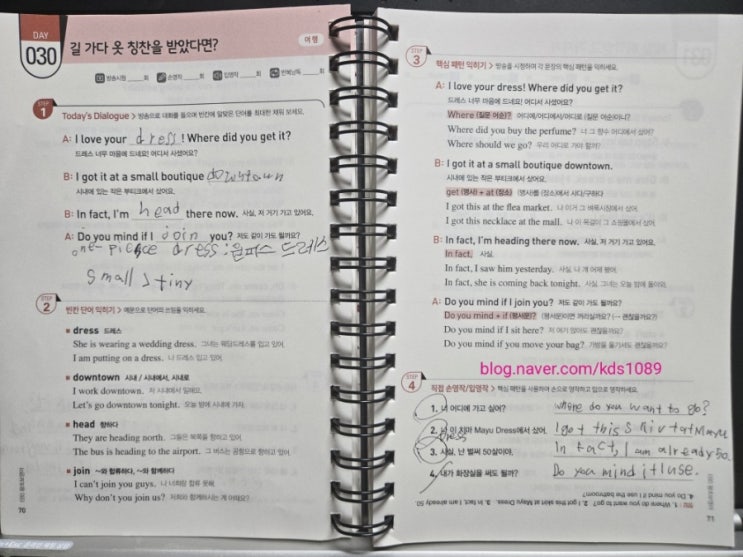 DAY
030
길 가다 옷 칭찬을 받았다면?
여행
방송시청 ____회 손영작 ____회 입영작 ____회 반복낭독 ____회
STEP 1
Today's Dialogue > 방송으로 대화를 들으며 빈칸에 알맞은 단어를 최대한 채워 보세요.
A: I love your dress! Where did you get it?
드레스 너무 마음에 드네요! 어디서 사셨어요?
B: I got it at a small boutique downtown
시내에 있는 작은 부티크에서 샀어요.
B: In fact, I'm head there now. 사실, 저 거기 가고 있어요.
A: Do you mind if I join you? 저도 같이 가도 될까요?
one-piece dress : 원피스 드레스
small > tiny
STEP 2
빈칸 단어 익히기 > 예문으로 단어의 쓰임을 익히세요.
dress 드레스
She is wearing a wedding dress. 그녀는 웨딩드레스를 입고 있어.
I am putting on a dress. 나 드레스 입고 있어.
downtown 시내 / 시내에서, 시내로
I work downtown. 저 시내에서 일해요.
Let's go downtown tonight. 오늘 밤에 시내에 가자.
head 향하다
They are heading north. 그들은 북쪽을 향하고 있어.
The bus is heading to the airport. 그 버스는 공항으로 향하고 있어.
join ~와 합류하다, ~와 함께하다
I can't join you guys. 나 너희랑 합류 못해.
Why don't you join us? 저희와 함께하시는 게 어때요?
70
STEP 3
핵심 패턴 익히기 > 방송을 시청하며 각 문장의 핵심 패턴을 익히세요.
A: I love your dress! Where did you get it?
드레스 너무 마음에 드네요! 어디서 사셨어요?
Where (질문 어순)? 어디에/어디에서/어디로 (질문 어순)이니?
Where did you buy the perfume? 너 그 향수 어디에서 샀어?
Where should we go? 우리 어디로 가야 할까?
B: I got it at a small boutique downtown.
시내에 있는 작은 부티크에서 샀어요.
get (명사) + at (장소) (명사)를 (장소)에서 사다/구하다
I got this at the flea market. 나 이거 그 벼룩시장에서 샀어.
I got this necklace at the mall. 나 이 목걸이 그 쇼핑몰에서 샀어.
B: In fact, I'm heading there now. 사실, 저 거기 가고 있어요.
In fact, 사실,
In fact, I saw him yesterday. 사실, 나 걔 어제 봤어.
In fact, she is coming back tonight. 사실, 그녀는 오늘 밤에 돌아와.
A: Do you mind if I join you? 저도 같이 가도 될까요?
Do you mind + if (평서문)? (평서문)이면 꺼리실까요? (→ 괜찮을까요?)
Do you mind if I sit here? 저 여기 앉아도 괜찮을까요?
Do you mind if you move your bag? 가방을 옮기셔도 괜찮을까요?
blog.naver.com/kds1089
STEP 4
직접 손영작/입영작 > 핵심 패턴을 사용하여 손으로 영작하고 입으로 영작하세요.
1. 너 어디에 가고 싶어? Where do you want to go?
2. 나 이 치마 Mayu Dress에서 샀어. I got this skirt at Mayu
Dress
3. 사실, 난 벌써 50살이야. In fact, I am already 50.
4. 내가 화장실을 써도 될까? Do you mind if I use.
정답 1. Where do you want to go? 2. I got this skirt at Mayu Dress. 3. In fact, I am already 50.
4. Do you mind if I use the bathroom?
71